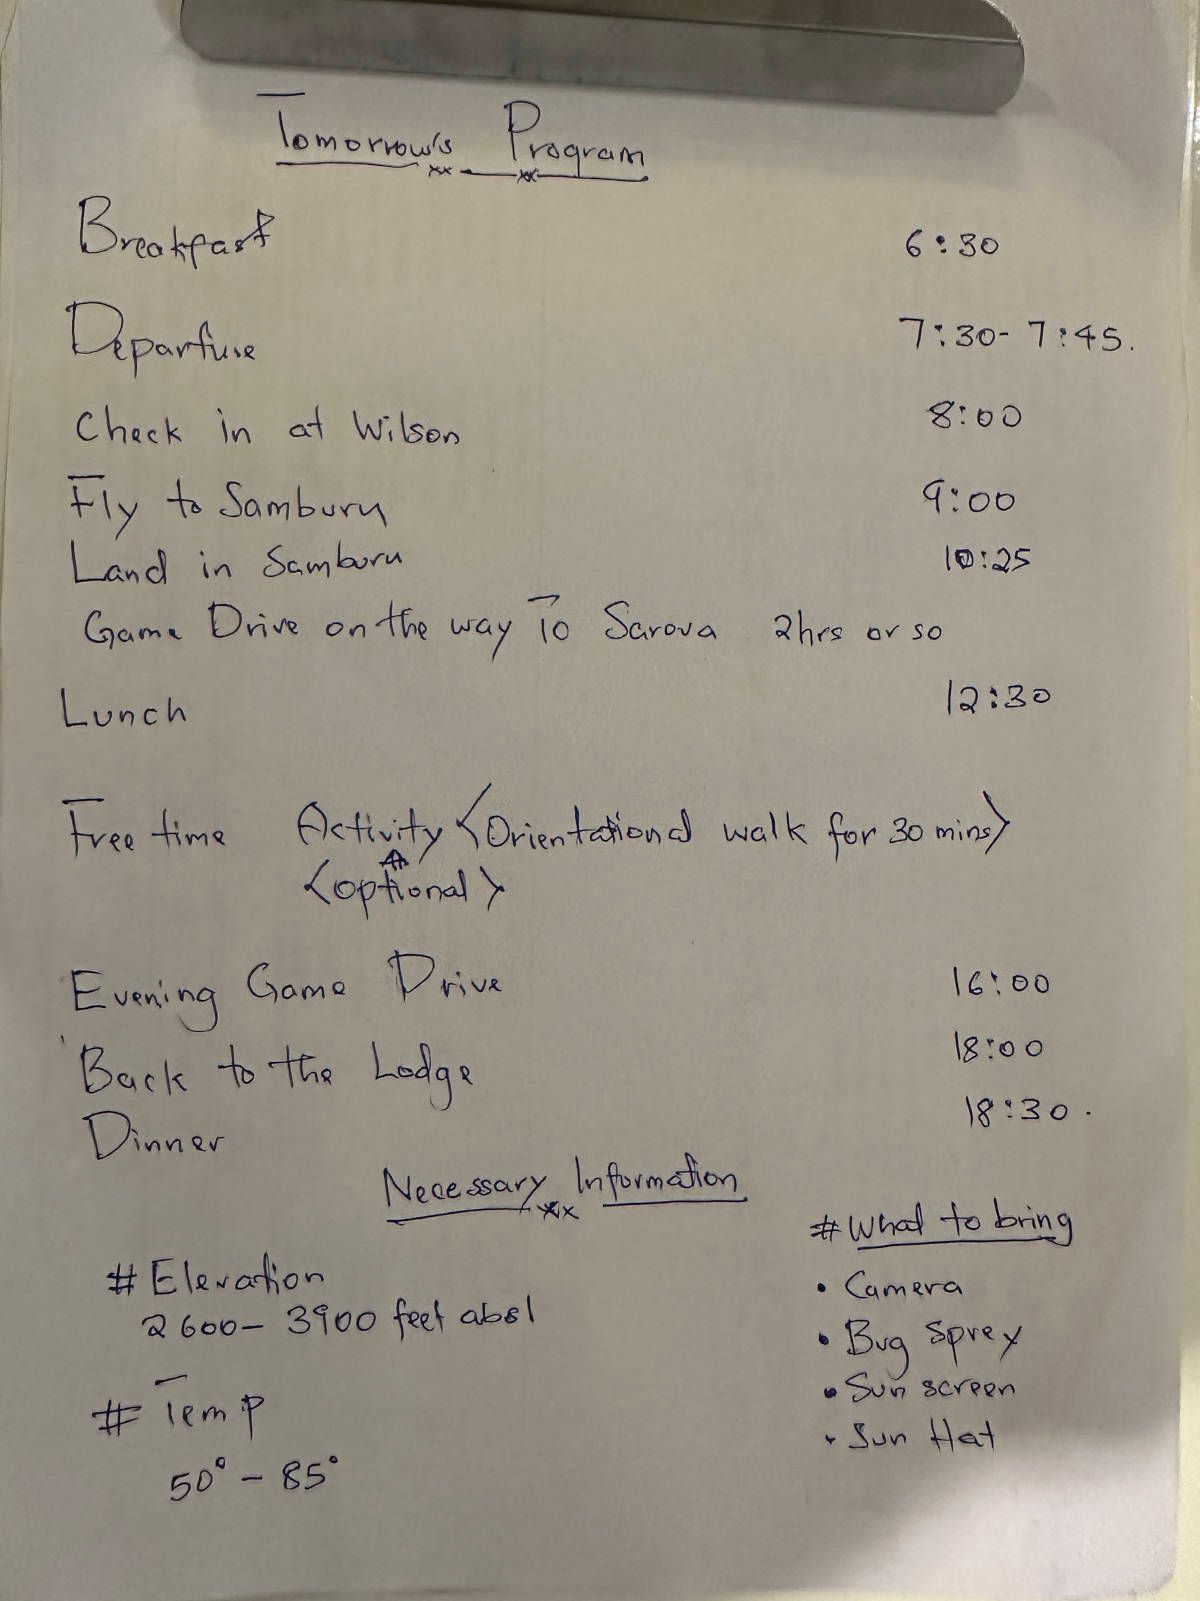 Tomorrow's Program
Breakfast 6:30
Departure 7:30- 7:45.
Check in at Wilson 8:00
Fly to Samburu 9:00
Land in Samburu 10:25
Game Drive on the way To Sarova 2hrs or so
Lunch 12:30
Free time Activity <Orientational walk for 30 mins>
<optional>
Evening Game Drive 16:00
Back to the Lodge 18:00
Dinner 18:30.
Necessary Information
# What to bring
# Elevation
• Camera
2600- 3900 feet absl
• Bug Sprey
• Sun screen
# Temp
• Sun Hat
50° - 85°